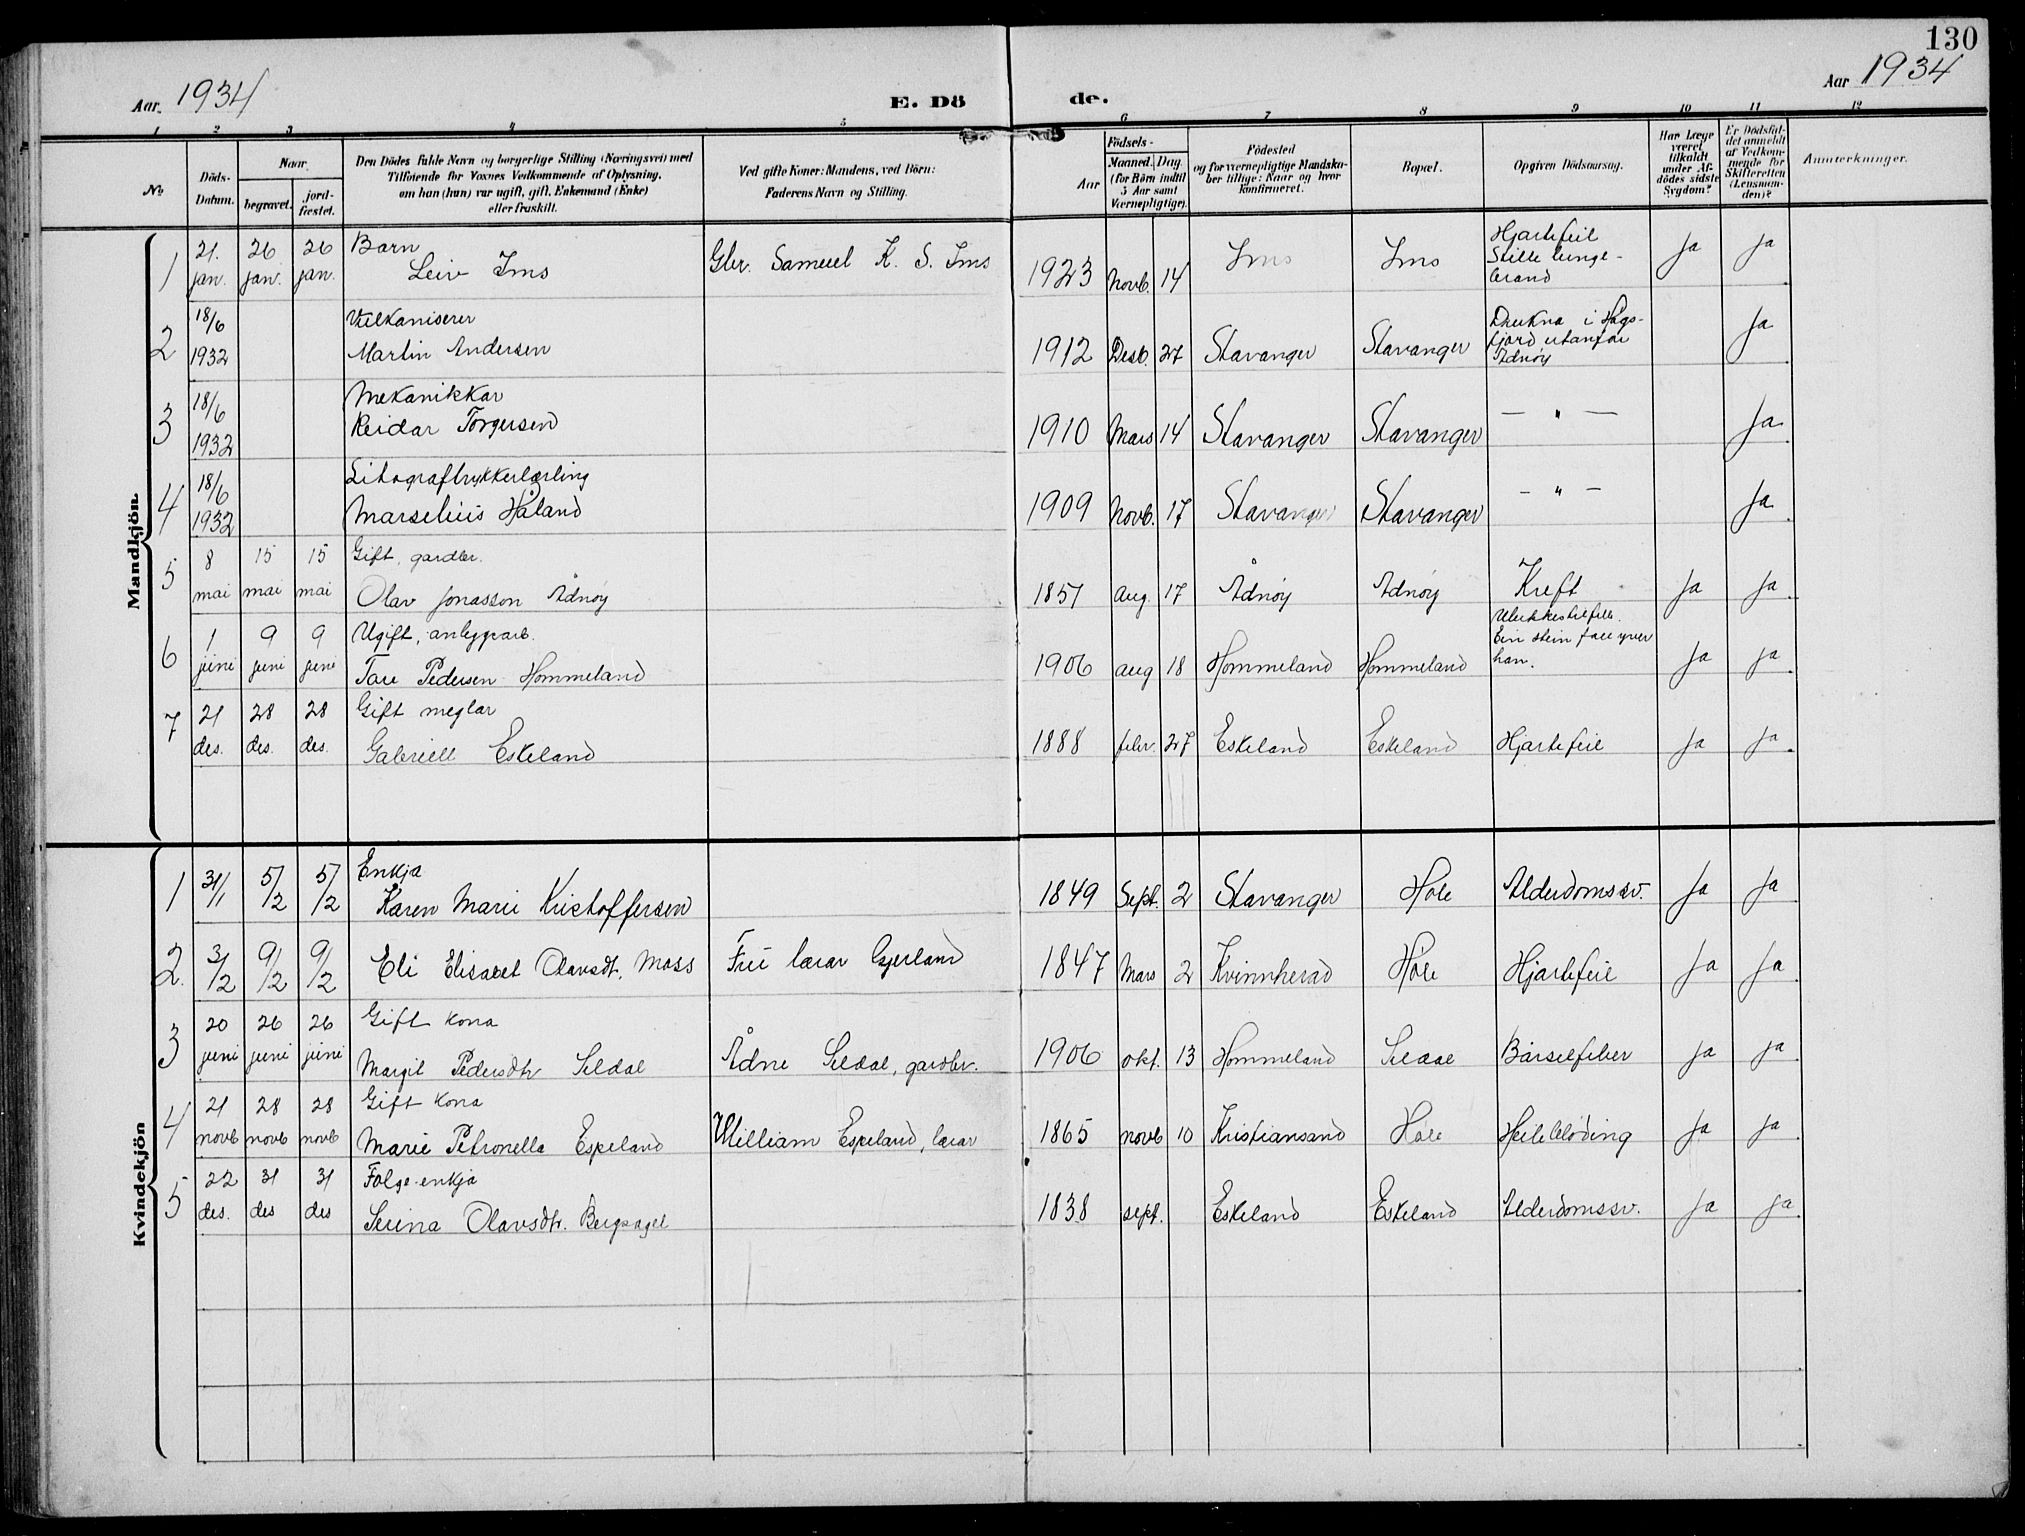 130
Aar 1934
E. Dö
de.
Aar 1934
1 2 3 4 5 6 7 8 9 10 11 12
No.
Döds-
Datum.
Naar
begravet.
jord-
fæstet.
Den Dödes fulde Navn og borgerlige Stilling (Næringsvei) med
Tilföiende for Voxnes Vedkommende af Oplysning,
om han (hun) var ugift, gift, Enkemand (Enke)
eller fraskilt.
Ved gifte Koner: Mandens, ved Börn:
Faderens Navn og Stilling.
Födsels-
Aar
Maaned. Dag
(for Börn indtil
5 Aar samt
Værnepligtige).
Födested
og for værnepligtige Mandska-
ber tillige: Naar og hvor
konfirmeret.
Bopæl.
Opgiven Dödsaarsag.
Har Læge
været
tilkaldt
under Af-
dödes sidste
Sygdom?
Er Dödsfal-
det anmeldt
af Vedkom-
mende for
Skifteretten
(Lensman-
den)?
Anmærkninger.
Mandkjön.
1 21. jan. 26 jan. 26 jan. Barn
Leiv Ims Gbr. Samuel K. S. Ims 1923 Novb. 14 Ims Ims Hjartefeil
Stille lunge-
brand Ja Ja
2 18/6 1932 Vulkaniserer
Martin Andersen 1912 Desb. 27 Stavanger Stavanger Drukna i Høgs-
fjord utanfor
Ådnøy Ja
3 18/6 1932 Mekanikkar
Reidar Torgersen 1910 Mars 14 Stavanger Stavanger — " — Ja
4 18/6 1932 Litograftrykkerlærling
Marselius Håland 1909 Novb. 17 Stavanger Stavanger — " — Ja
5 8 mai 15 mai 15 mai Gift, gardbr.
Olav Jonasson Ådnøy 1857 Aug. 17 Ådnøy Ådnøy Kreft Ja Ja
6 1 juni 9 juni 9 juni Ugift, anleggsarb.
Tore Pedersen Hommeland 1906 aug 18 Hommeland Hommeland Ulukkestilfelle.
Ein stein fall yver
han. Ja Ja
7 21 des. 28 des. 28 des. Gift meglar
Gabriell Eskeland 1888 febr. 27 Eskeland Eskeland Hjartefeil Ja Ja
Kvindekjön
1 31/1 5/2 5/2 Enkja
Karen Marie Kristoffersen 1849 Sept. 2 Stavanger Høle Alderdomssv. Ja Ja
2. 3/2 9/2 9/2 Eli Elisabet Olavsdt. Moss Fru lærar Gjerland 1847 Mars 2 Kvinnherad Høle Hjartefeil Ja Ja
3 20 juni 26 juni 26 juni Gift kona
Margit Pedersdtr Seldal Ådne Seldal, gardbr. 1906 okt. 13 Hommeland Seldal Barselfeber Ja Ja
4 21 novb 28 novb 28 novb Gift kona
Marie Petronella Espeland William Espeland, lærar 1865 novb 10 Kristiansand Høle Heilebløding Ja Ja
5 22 des. 31 des 31 des Følge-enkja
Serina Olavsdtr. Bergsagel 1838 sept. Eskeland Eskeland Alderdomssv. Ja Ja